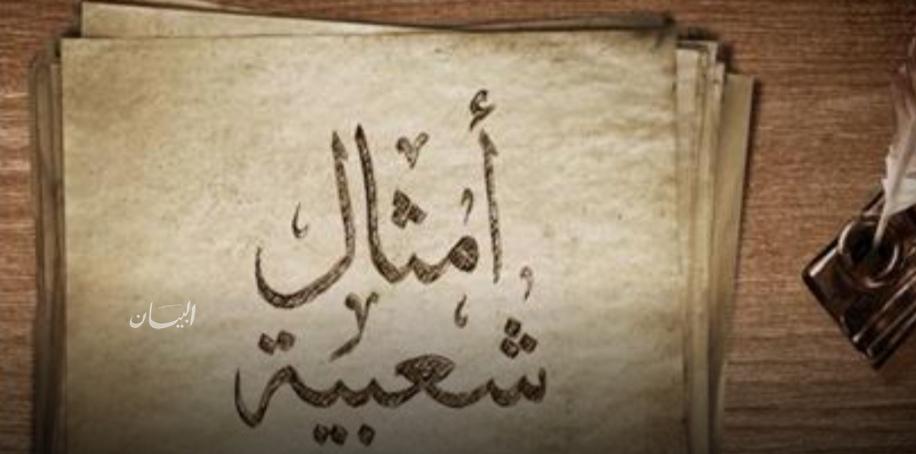 أمثال
شعبية
البيان